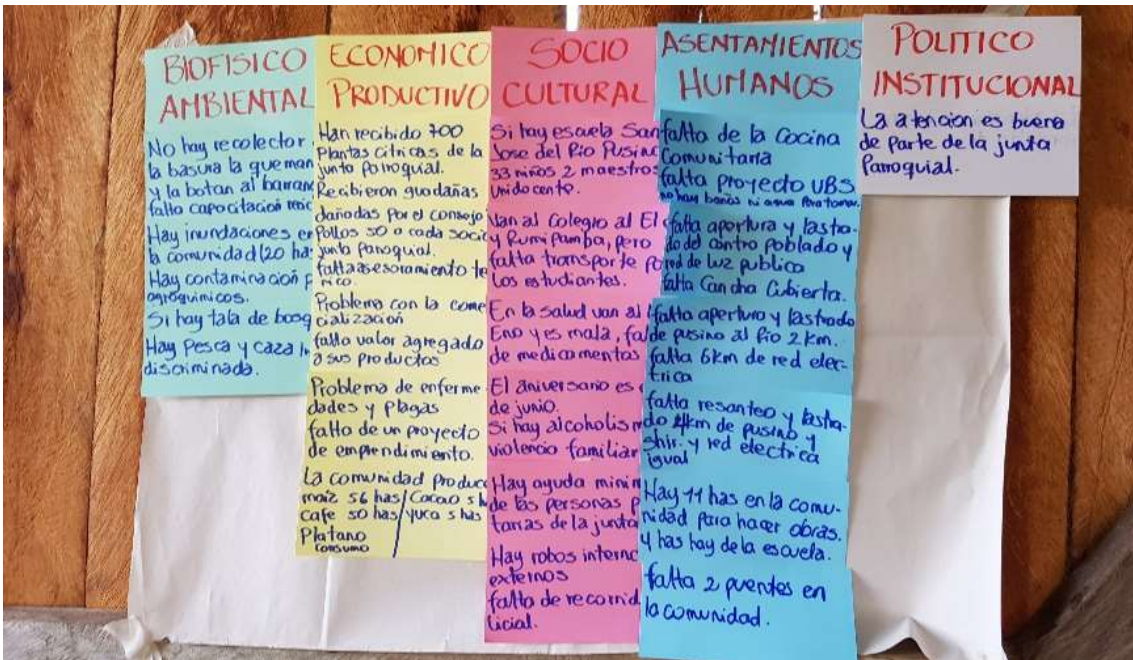 BIOFISICO
AMBIENTAL
No hay recolector
la basura la queman
y la botan al barran
falta capacitación
Hay inundaciones en
la comunidad (20 has
Hay contaminación p
agroquimicos.
Si hay tala de bosq
Hay Pesca y caza in
discriminada.
ECONOMICO
PRODUCTIVO
Han recibido 700
Plantas citricas de la
junta Parroquial.
Recibieron guadañas
dañadas por el consejo
Pollos 50 a cada socio
junta Parroquial.
falta asesoramiento te
nico.
Problema con la come
cialización
falta valor agregado
a sus productos
Problema de enferme
dades y Plagas
falta de un proyecto
de emprendimiento.
La comunidad produce
maiz 56 has/Cacao 5 h
cafe 50 has/yuca 5 has
Platano
consumo
SOCIO
CULTURAL
Si hay escuela San
Jose del Rio Pusino
33 niños 2 maestros
Unidocente.
Van al Colegio al E
y Rumi Pamba, pero
falta transporte Pa
los estudiantes.
En la salud van al
Eno y es mala, fal
de medicamentos
El aniversario es
de junio.
Si hay alcoholism
violencia familiar
Hay ayuda minim
de las personas p
tarias de la junta
Hay robos interno
externos
falta de recorrid
licial.
ASENTAMIENTOS
HUMANOS
falta de la Cocina
Comunitaria
falta proyecto UBS
no hay baños ni agua Para tomar.
falta apertura y lastra-
do del centro poblado y
red de luz publica
falta Cancha Cubierta.
falta apertura y lastrado
de pusino al Río 2 km.
falta 6km de red elec-
trica
falta resanteo y lastra-
do 4km de pusino y
shir. y red electrica
igual
Hay 11 has en la comu-
nidad para hacer obras.
4 has hay de la escuela.
falta 2 puentes en
la comunidad.
POLITICO
INSTITUCIONAL
La atencion es buena
de parte de la junta
Parroquial.